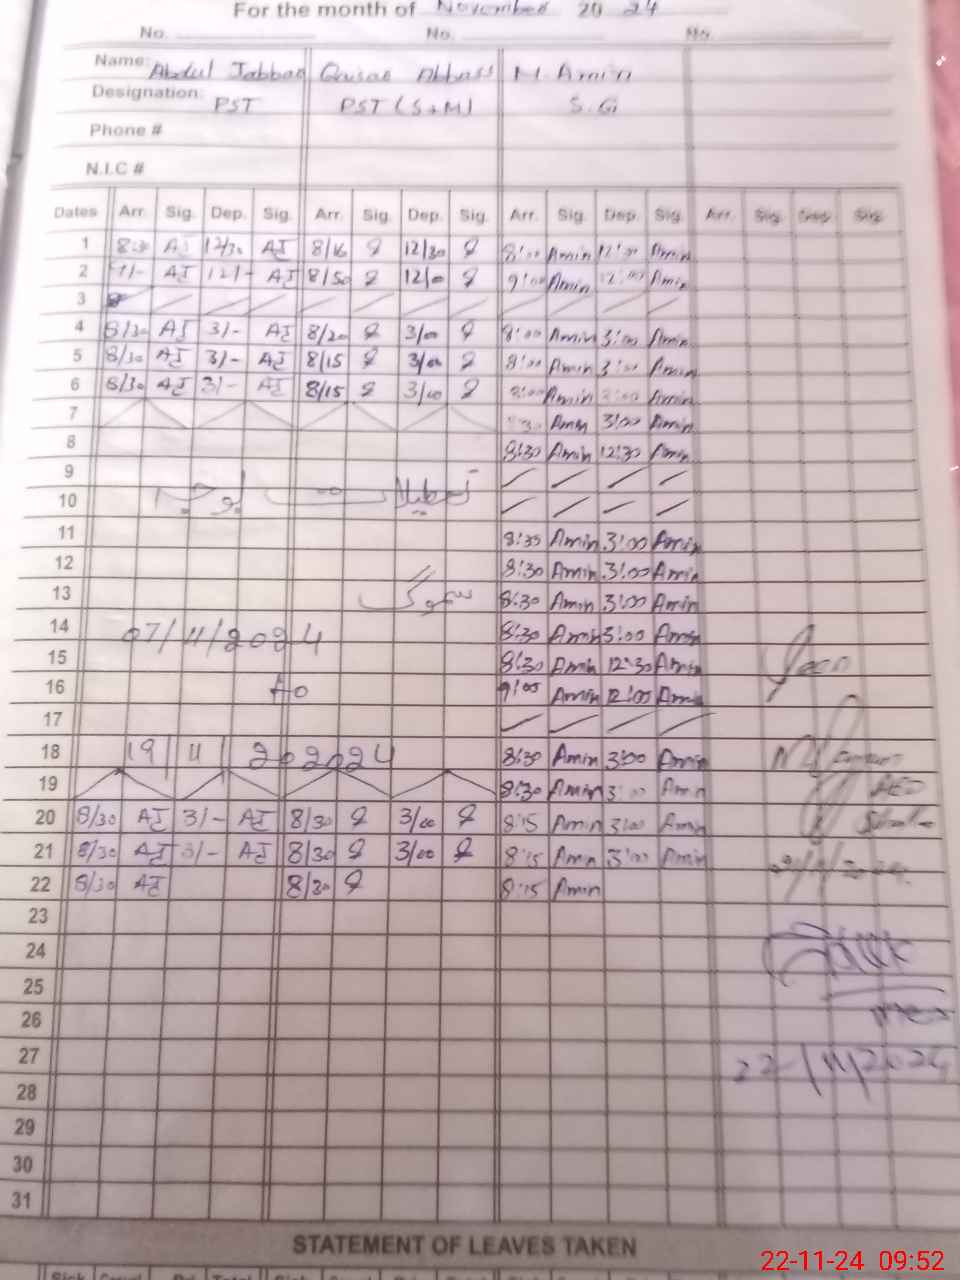 For the month of November 2024
No. No. No.
Name: Abdul Jabbar Qaisar Abbass M. Amin
Designation: PST PST (S+M) S.G
Phone #
N.I.C #
Dates Arr. Sig. Dep. Sig. Arr. Sig. Dep. Sig. Arr. Sig. Dep. Sig. Arr. Sig. Dep. Sig.
1 8:30 AJ 12/30 AJ 8/16 12/30 8:00 Amin 12:00 Amin
2 AJ 12/- AJ 8/50 12/00 9:00 Amin 12:00 Amin
3
4 8/30 AJ 3/- AJ 8/20 3/00 8:00 Amin 3:00 Amin
5 8/30 AJ 3/- AJ 8/15 3/00 8:00 Amin 3:00 Amin
6 8/30 AJ 3/- AJ 8/15 3/00 8:00 Amin 3:00 Amin
7 Amin 3:00 Amin
8 8:30 Amin 12:30 Amin
9
10 تعطیلات بوجہ
11 8:30 Amin 3:00 Amin
12 8:30 Amin 3:00 Amin
13 سموگ 8:30 Amin 3:00 Amin
14 07/11/2024 8:30 Amin 3:00 Amin
15 8:30 Amin 12:30 Amin
16 to 9:00 Amin 12:00 Amin
17
18 19/11/202024 8:30 Amin 3:00 Amin
19 8:30 Amin 3:00 Amin
20 8/30 AJ 3/- AJ 8/30 3/00 8:15 Amin 3:00 Amin
21 8/30 AJ 3/- AJ 8/30 3/00 8:15 Amin 3:00 Amin
22 8/30 AJ 8/30 8:15 Amin
23
24
25
26
27 22/11/2024
28
29
30
31
STATEMENT OF LEAVES TAKEN
22-11-24 09:52